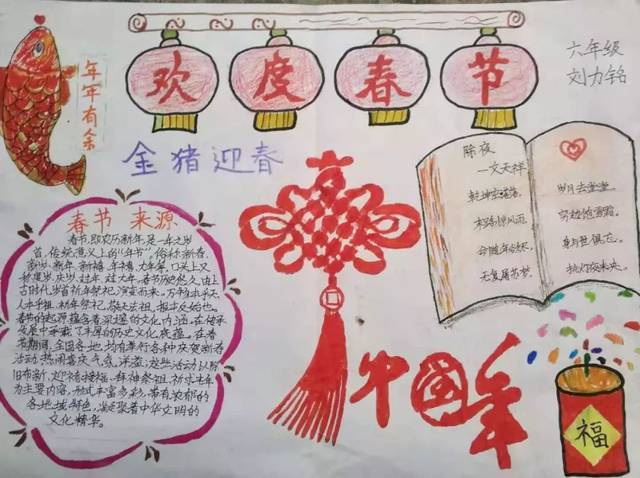 欢度春节
六年级
刘力铭
年年有余
金猪迎春
除夜
一文天祥
乾坤空落落
岁月去堂堂
末路惊风雨
穷边饱雪霜
命随年欲尽
身与世俱忘
无复屠苏梦
挑灯夜未央
春节 来源
春节即农历新年,是一年之岁
首,传统意义上的“年节”。俗称新春、
新岁、新年、新禧、年禧、大年等,口头上又
称度岁、庆岁、过年、过大年。春节历史悠久,由上
古时代岁首祈年祭祀演变而来。万物本乎天
人本乎祖,祈年祭祀、敬天法祖,报本反始也。
春节的起源蕴含着深邃的文化内涵,在传承
发展中承载了丰厚的历史文化底蕴。在春
节期间,全国各地均有举行各种庆贺新春
活动,热闹喜庆气氛洋溢;这些活动以除
旧布新、迎禧接福、拜神祭祖、祈求丰年
为主要内容,形式丰富多彩,带有浓郁的
各地域特色,凝聚着中华文明的
文化精华。
中国年
福